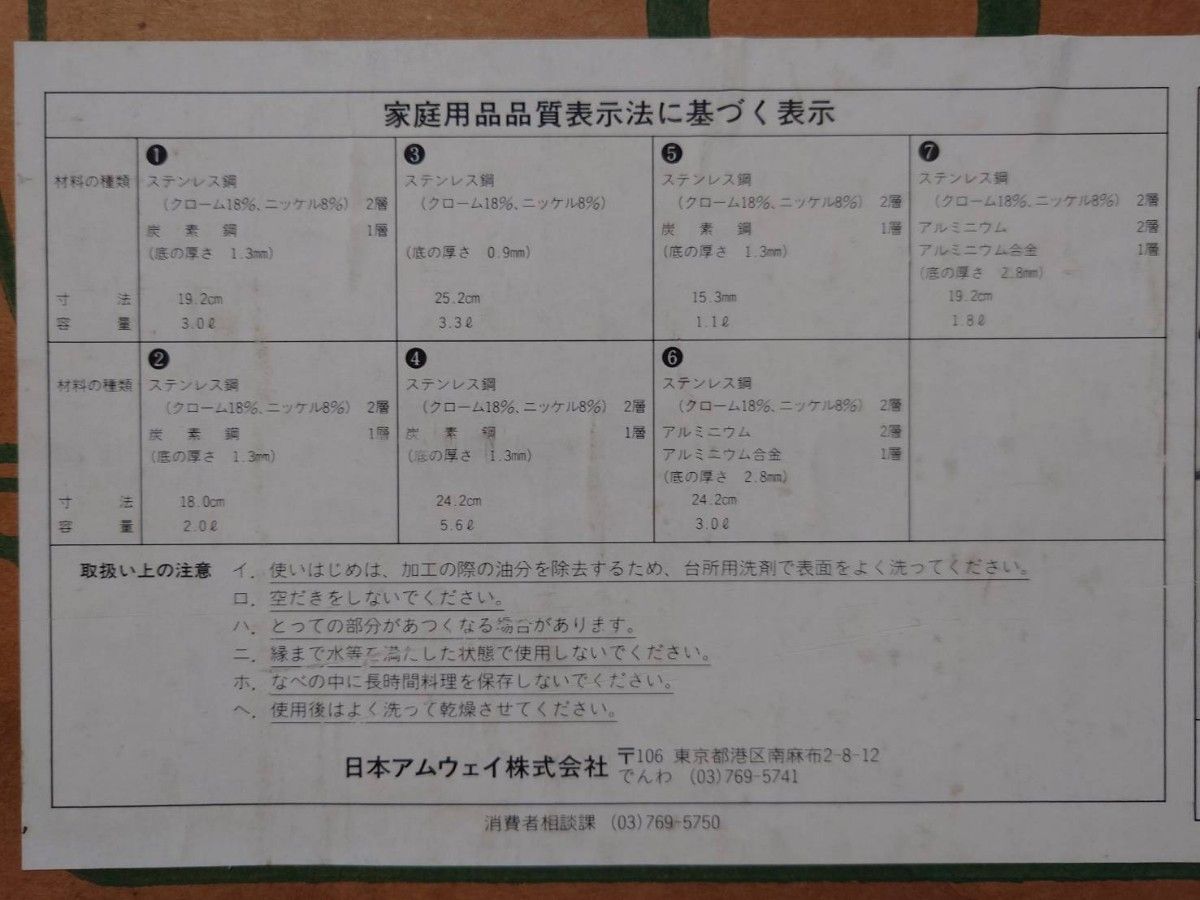 家庭用品品質表示法に基づく表示
❶
材料の種類 ステンレス鋼
(クローム18%、ニッケル8%) 2層
炭素鋼 1層
(底の厚さ 1.3mm)
寸法 19.2cm
容量 3.0ℓ
❸
ステンレス鋼
(クローム18%、ニッケル8%)
(底の厚さ 0.9mm)
25.2cm
3.3ℓ
❺
ステンレス鋼
(クローム18%、ニッケル8%) 2層
炭素鋼 1層
(底の厚さ 1.3mm)
15.3mm
1.1ℓ
❼
ステンレス鋼
(クローム18%、ニッケル8%) 2層
アルミニウム 2層
アルミニウム合金 1層
(底の厚さ 2.8mm)
19.2cm
1.8ℓ
❷
材料の種類 ステンレス鋼
(クローム18%、ニッケル8%) 2層
炭素鋼 1層
(底の厚さ 1.3mm)
寸法 18.0cm
容量 2.0ℓ
❹
ステンレス鋼
(クローム18%、ニッケル8%) 2層
炭素鋼 1層
(底の厚さ 1.3mm)
24.2cm
5.6ℓ
❻
ステンレス鋼
(クローム18%、ニッケル8%) 2層
アルミニウム 2層
アルミニウム合金 1層
(底の厚さ 2.8mm)
24.2cm
3.0ℓ
取扱い上の注意 イ. 使いはじめは、加工の際の油分を除去するため、台所用洗剤で表面をよく洗ってください。
ロ. 空だきをしないでください。
ハ. とっての部分があつくなる場合があります。
ニ. 縁まで水等を満たした状態で使用しないでください。
ホ. なべの中に長時間料理を保存しないでください。
ヘ. 使用後はよく洗って乾燥させてください。
日本アムウェイ株式会社 〒106 東京都港区南麻布2-8-12
でんわ (03)769-5741
消費者相談課 (03)769-5750